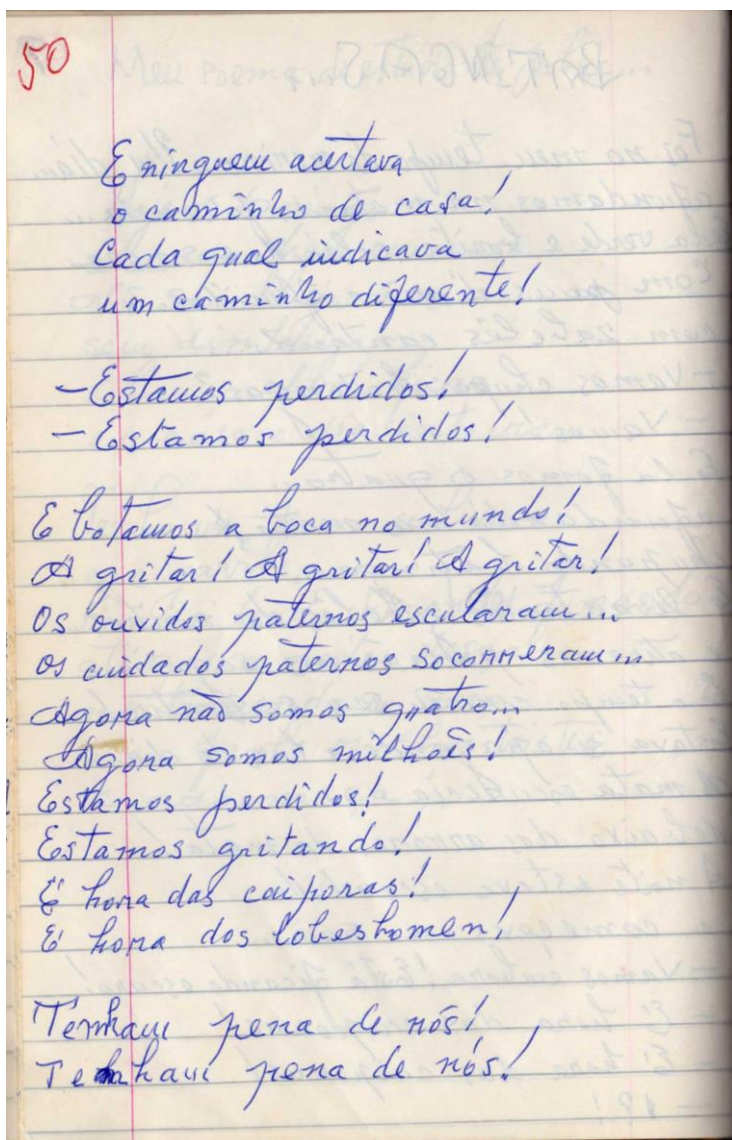 50
E ninguem acertava
o caminho de casa!
Cada qual indicava
um caminho diferente!
- Estamos perdidos!
- Estamos perdidos!
E botamos a boca no mundo!
A gritar! A gritar! A gritar!
Os ouvidos paternos escutaram...
Os cuidados paternos socorreram...
Agora não somos quatro...
Agora somos milhões!
Estamos perdidos!
Estamos gritando!
É hora das caiporas!
É hora dos lobeshomen!
Tenham pena de nós!
Tenham pena de nós!